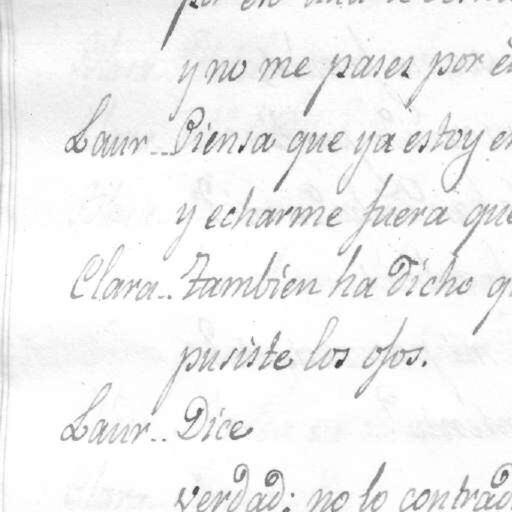 y no me pases por
Laur.. Piensa que ya estoy
y echarme fuera que
Clara.. Tambien ha dicho
pusiste los ojos.
Laur.. Dice
verdad; no lo contrad